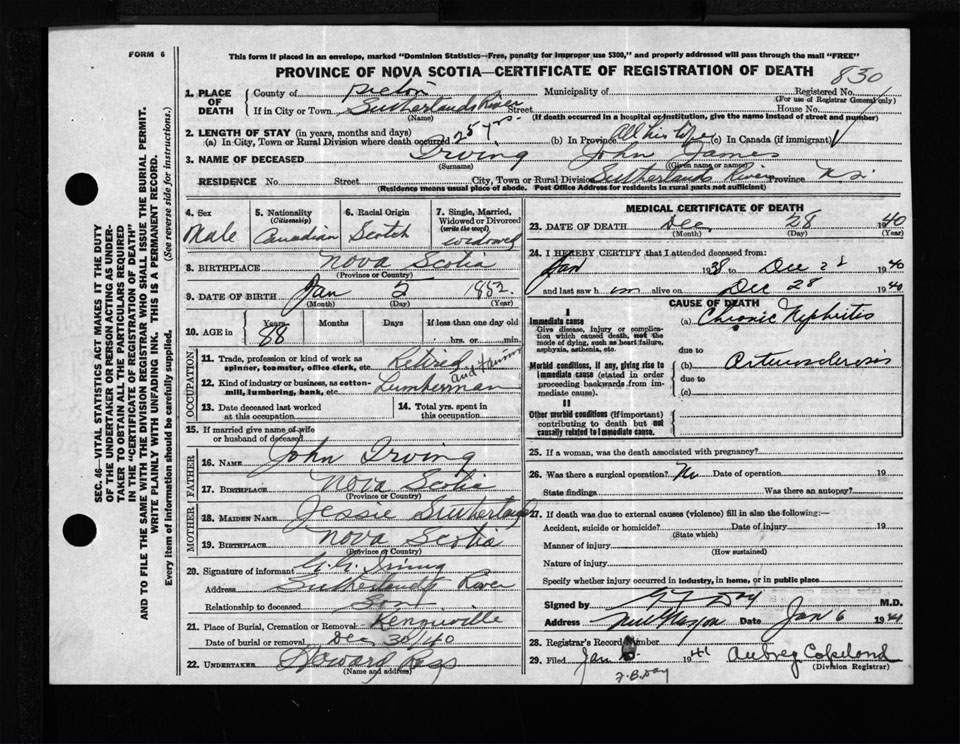 FORM 6
This form if placed in an envelope, marked "Dominion Statistics—Free, penalty for improper use $300," and properly addressed will pass through the mail "FREE"
PROVINCE OF NOVA SCOTIA—CERTIFICATE OF REGISTRATION OF DEATH
830
1. PLACE OF DEATH County of Pictou Municipality of Registered No.
(For use of Registrar General only)
If in City or Town Sutherlands River Street House No.
(Name) (If death occurred in a hospital or institution, give the name instead of street and number)
2. LENGTH OF STAY (in years, months and days)
(a) In City, Town or Rural Division where death occurred 25 yrs. (b) In Province All his life (c) In Canada (if immigrant)
3. NAME OF DECEASED Irving John James
(Surname) (Given name or names)
RESIDENCE No. Street City, Town or Rural Division Sutherlands River Province N.S.
(Residence means usual place of abode. Post Office Address for residents in rural parts not sufficient)
4. Sex Male
5. Nationality (Citizenship) Canadian
6. Racial Origin Scotch
7. Single, Married, Widowed or Divorced (write the word) widowed
8. BIRTHPLACE Nova Scotia
(Province or Country)
9. DATE OF BIRTH Jan 2 1852
(Month) (Day) (Year)
10. AGE in Years 88 Months Days If less than one day
hrs. or min.
OCCUPATION
11. Trade, profession or kind of work as spinner, teamster, office clerk, etc. Retired
12. Kind of industry or business, as cotton-mill, lumbering, bank, etc. Lumberman and Farmer
13. Date deceased last worked at this occupation
14. Total yrs. spent in this occupation
15. If married give name of wife or husband of deceased
FATHER
16. NAME John Irving
17. BIRTHPLACE Nova Scotia
(Province or Country)
MOTHER
18. MAIDEN NAME Jessie Sutherland
19. BIRTHPLACE Nova Scotia
(Province or Country)
20. Signature of informant Irving
Address Sutherlands River
Relationship to deceased Son
21. Place of Burial, Cremation or Removal
Date of burial or removal Dec 30/40
22. UNDERTAKER Howard Ross
(Name and address)
MEDICAL CERTIFICATE OF DEATH
23. DATE OF DEATH Dec 28 1940
(Month) (Day) (Year)
24. I HEREBY CERTIFY that I attended deceased from:
Jan 1938 to Dec 28 1940
and last saw him alive on Dec 28 1940
CAUSE OF DEATH
I
Immediate cause (a) Chronic Nephritis
Give disease, injury or complication which caused death, not the mode of dying, such as heart failure, asphyxia, asthenia, etc.
due to
Morbid conditions, if any, giving rise to immediate cause (stated in order proceeding backwards from immediate cause). (b) Arteriosclerosis
due to
(c)
II
Other morbid conditions (if important) contributing to death but not causally related to immediate cause.
25. If a woman, was the death associated with pregnancy?
26. Was there a surgical operation? No Date of operation 19
State findings Was there an autopsy?
27. If death was due to external causes (violence) fill in also the following:—
Accident, suicide or homicide? Date of injury 19
(State which)
Manner of injury
(How sustained)
Nature of injury
Specify whether injury occurred in industry, in home, or in public place
Signed by Day M.D.
Address New Glasgow Date Jan 6 1941
28. Registrar's Record Number
29. Filed Jan 1941 Aubrey Copeland
(Division Registrar)
F.B. Day
SEC. 46—VITAL STATISTICS ACT MAKES IT THE DUTY
OF THE UNDERTAKER OR PERSON ACTING AS UNDER-
TAKER TO OBTAIN ALL THE PARTICULARS REQUIRED
IN THE "CERTIFICATE OF REGISTRATION OF DEATH"
AND TO FILE THE SAME WITH THE DIVISION REGISTRAR WHO SHALL ISSUE THE BURIAL PERMIT.
WRITE PLAINLY WITH UNFADING INK. THIS IS A PERMANENT RECORD.
Every item of information should be carefully supplied. (See reverse side for instructions.)